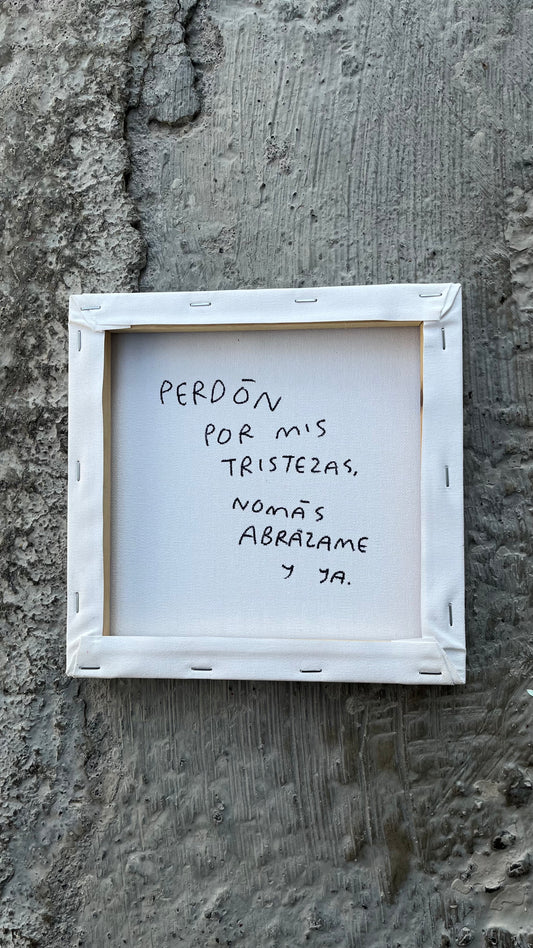 PERDÓN
POR MIS
TRISTEZAS,
NOMÁS
ABRÁZAME
Y YA.